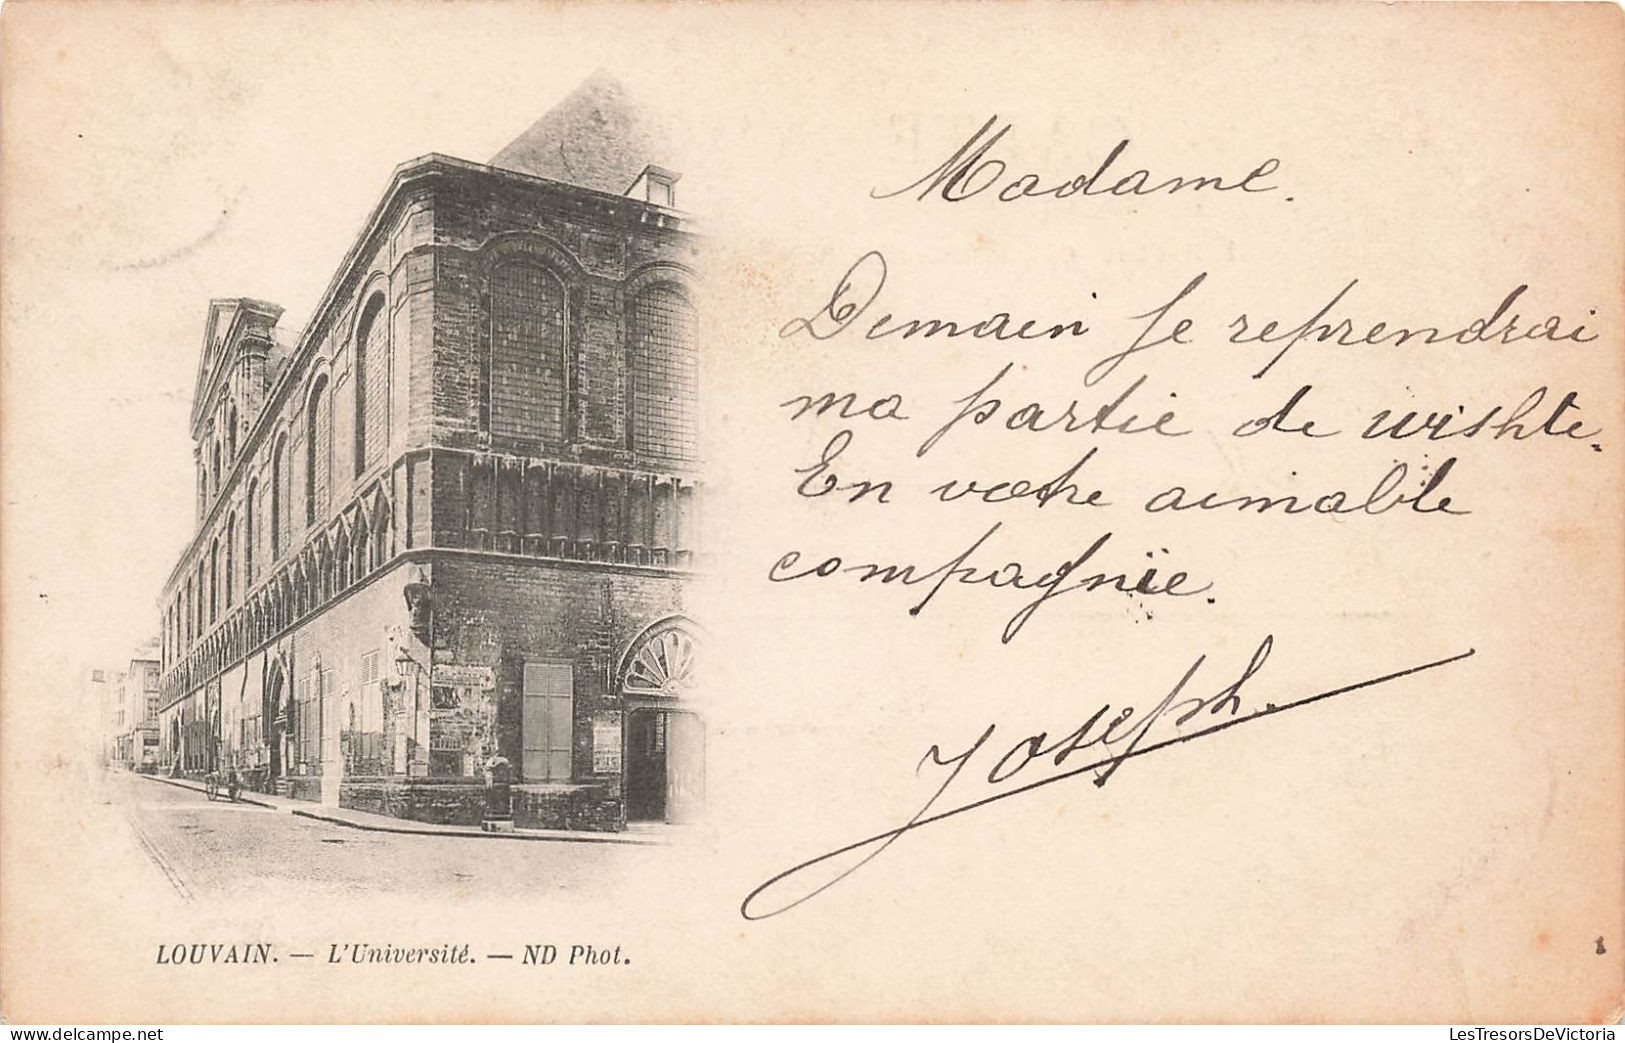 Madame.
Demain je reprendrai
ma partie de wishte.
En vœtre aimable
compagnïe.
Joseph.
LOUVAIN. — L'Université. — ND Phot.
LesTresorsDeVictoria